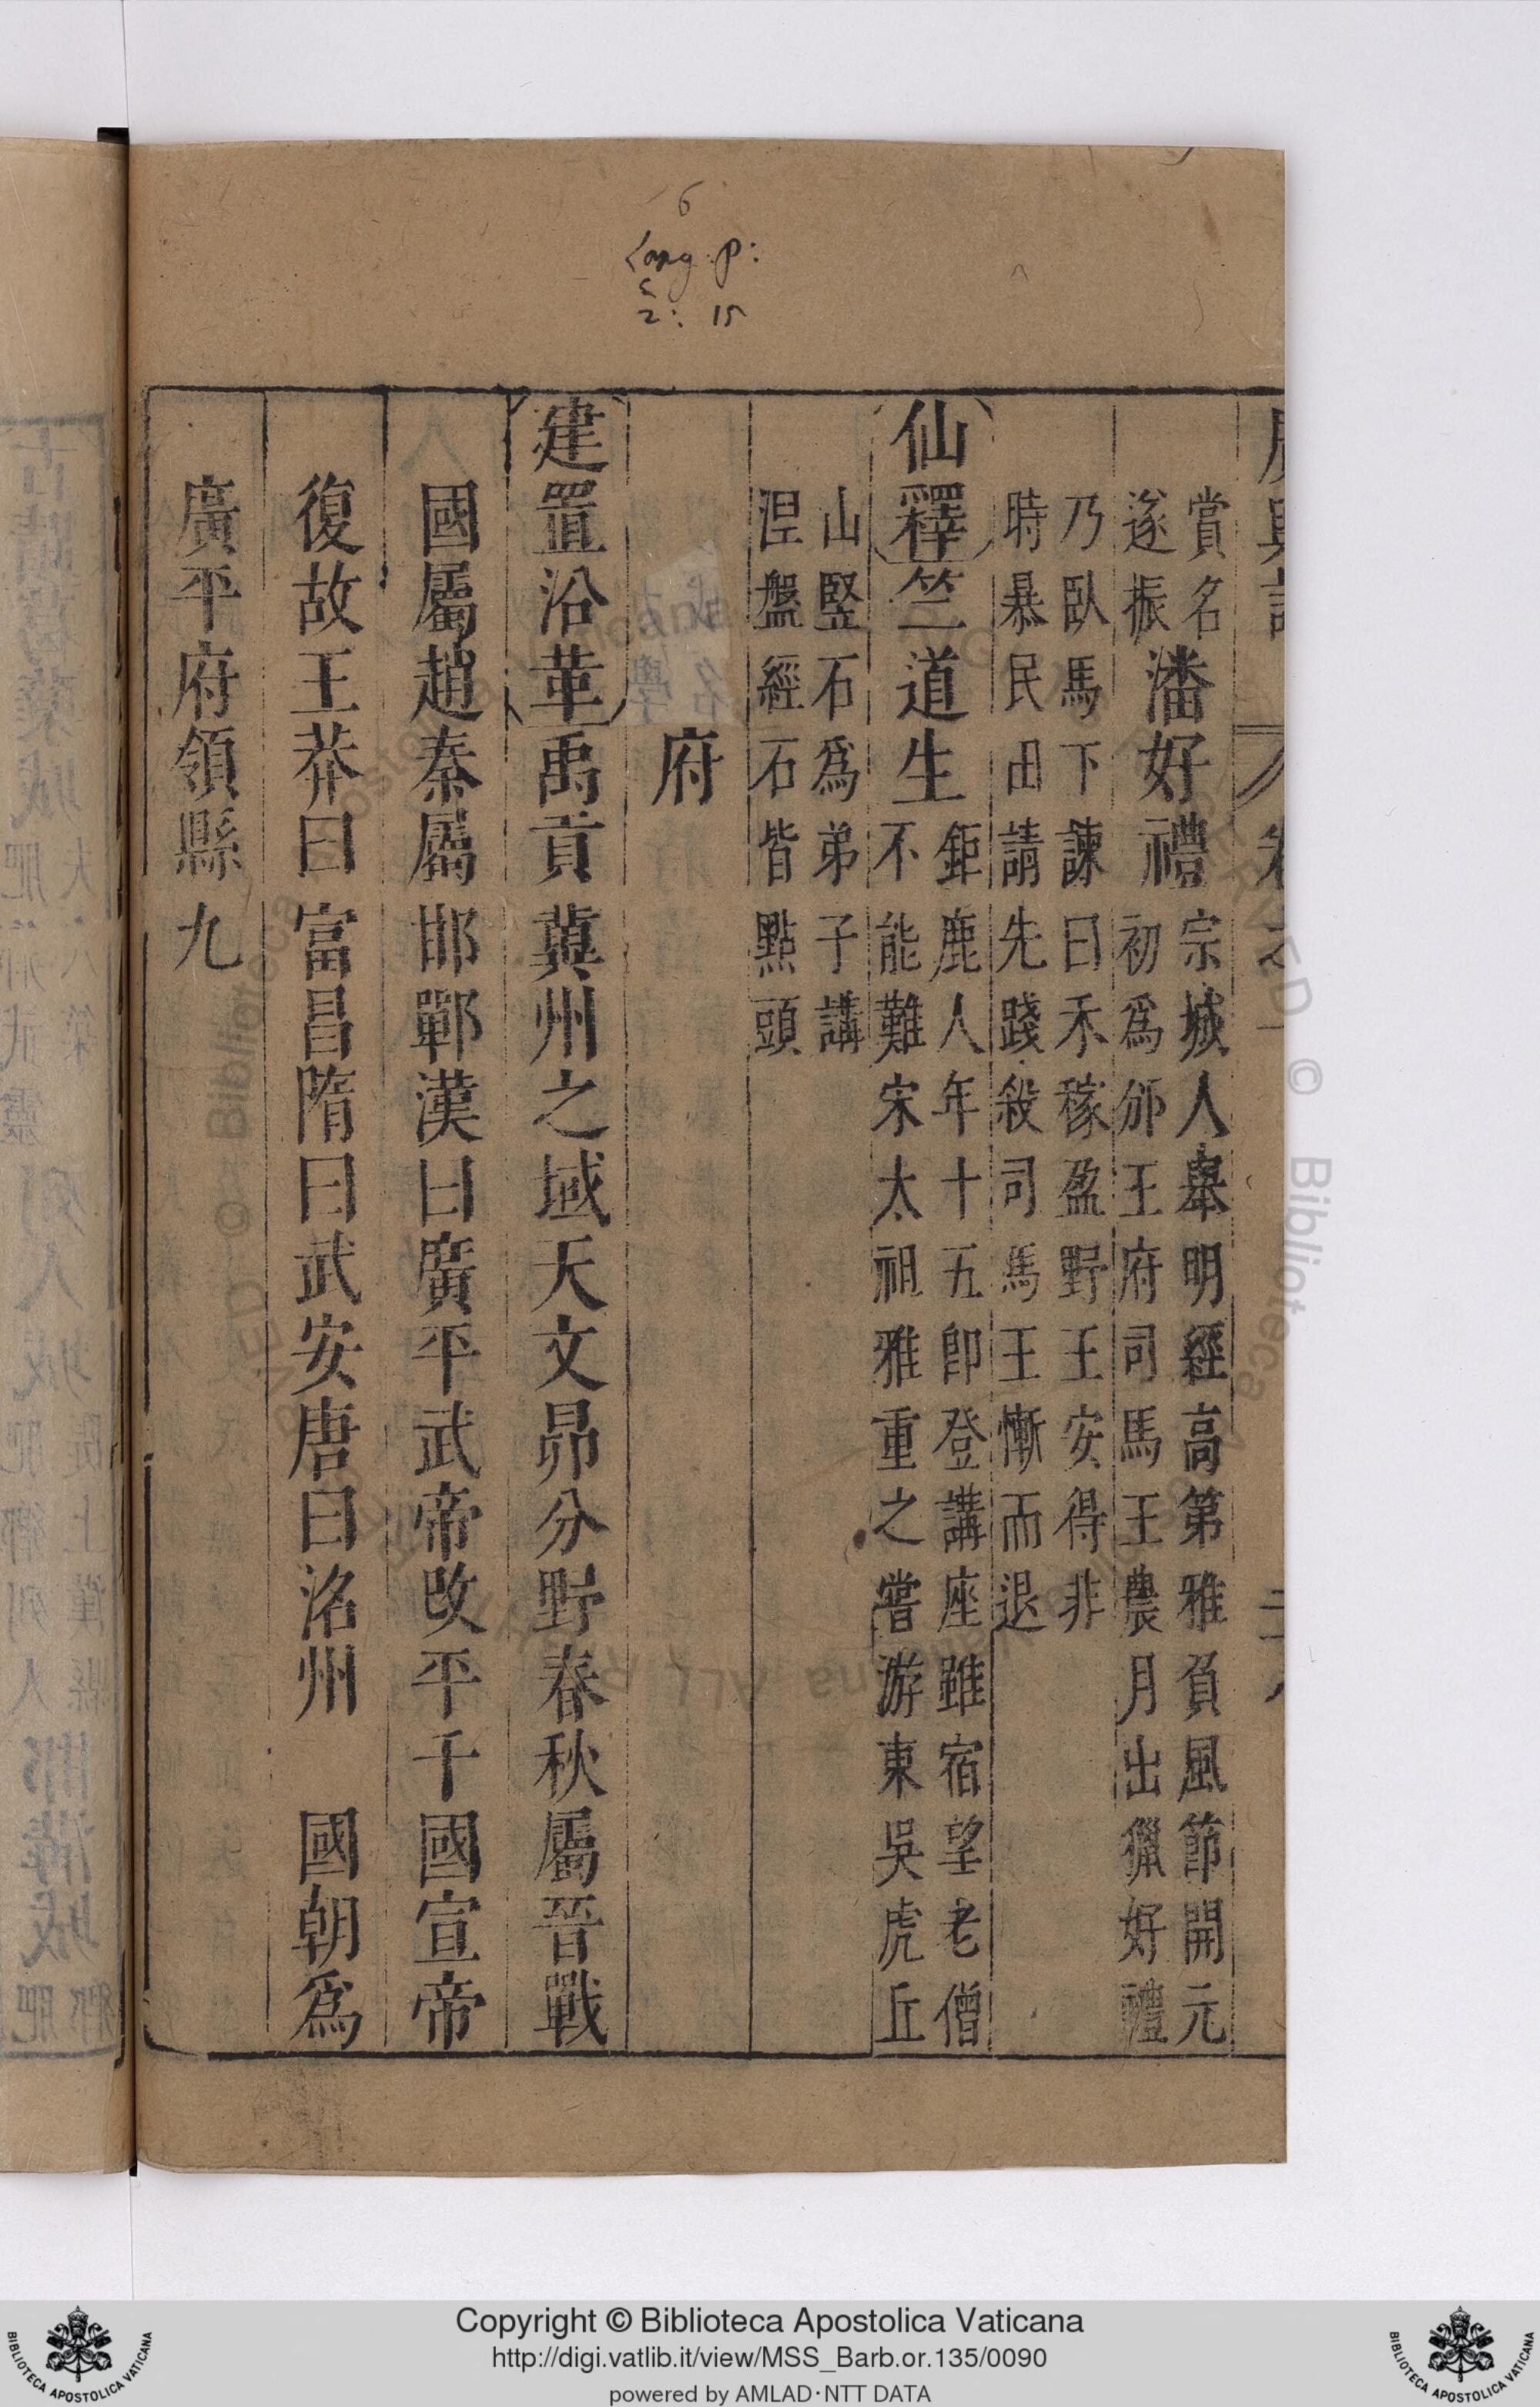 6
賞名潘好禮宗城人舉明經高第雅負風節開元
遂振初爲邠王府司馬王農月出獵好禮
乃臥馬下諫曰禾稼盈野王安得非
時暴民田請先踐殺司馬王慚而退
仙釋竺道生鉅鹿人年十五卽登講座雖宿望老僧
不能難宋太祖雅重之嘗游東吳虎丘
山竪石爲弟子講
涅盤經石皆點頭
府
建置沿革禹貢冀州之域天文昴分野春秋屬晉戰
國屬趙秦屬邯鄲漢曰廣平武帝改平干國宣帝
復故王莽曰富昌隋曰武安唐曰洺州 國朝爲
廣平府領縣九
Copyright © Biblioteca Apostolica Vaticana
http://digi.vatlib.it/view/MSS_Barb.or.135/0090
powered by AMLAD·NTT DATA
BIBLIOTECA APOSTOLICA VATICANA
BIBLIOTECA APOSTOLICA VATICANA